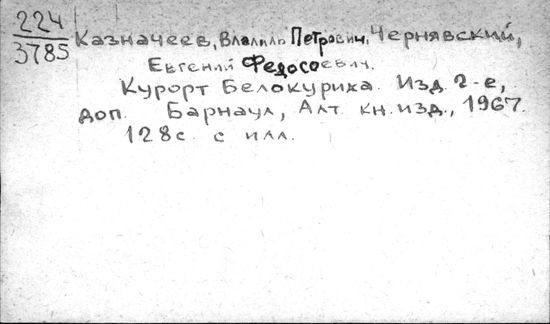 224
3785
Казначеев, Влаиль Петрович, Чернявский,
Евгений Федосоевич.
Курорт Белокуриха. Изд. 2-е,
доп. Барнаул, Алт. кн. изд., 1967.
128с. с илл.